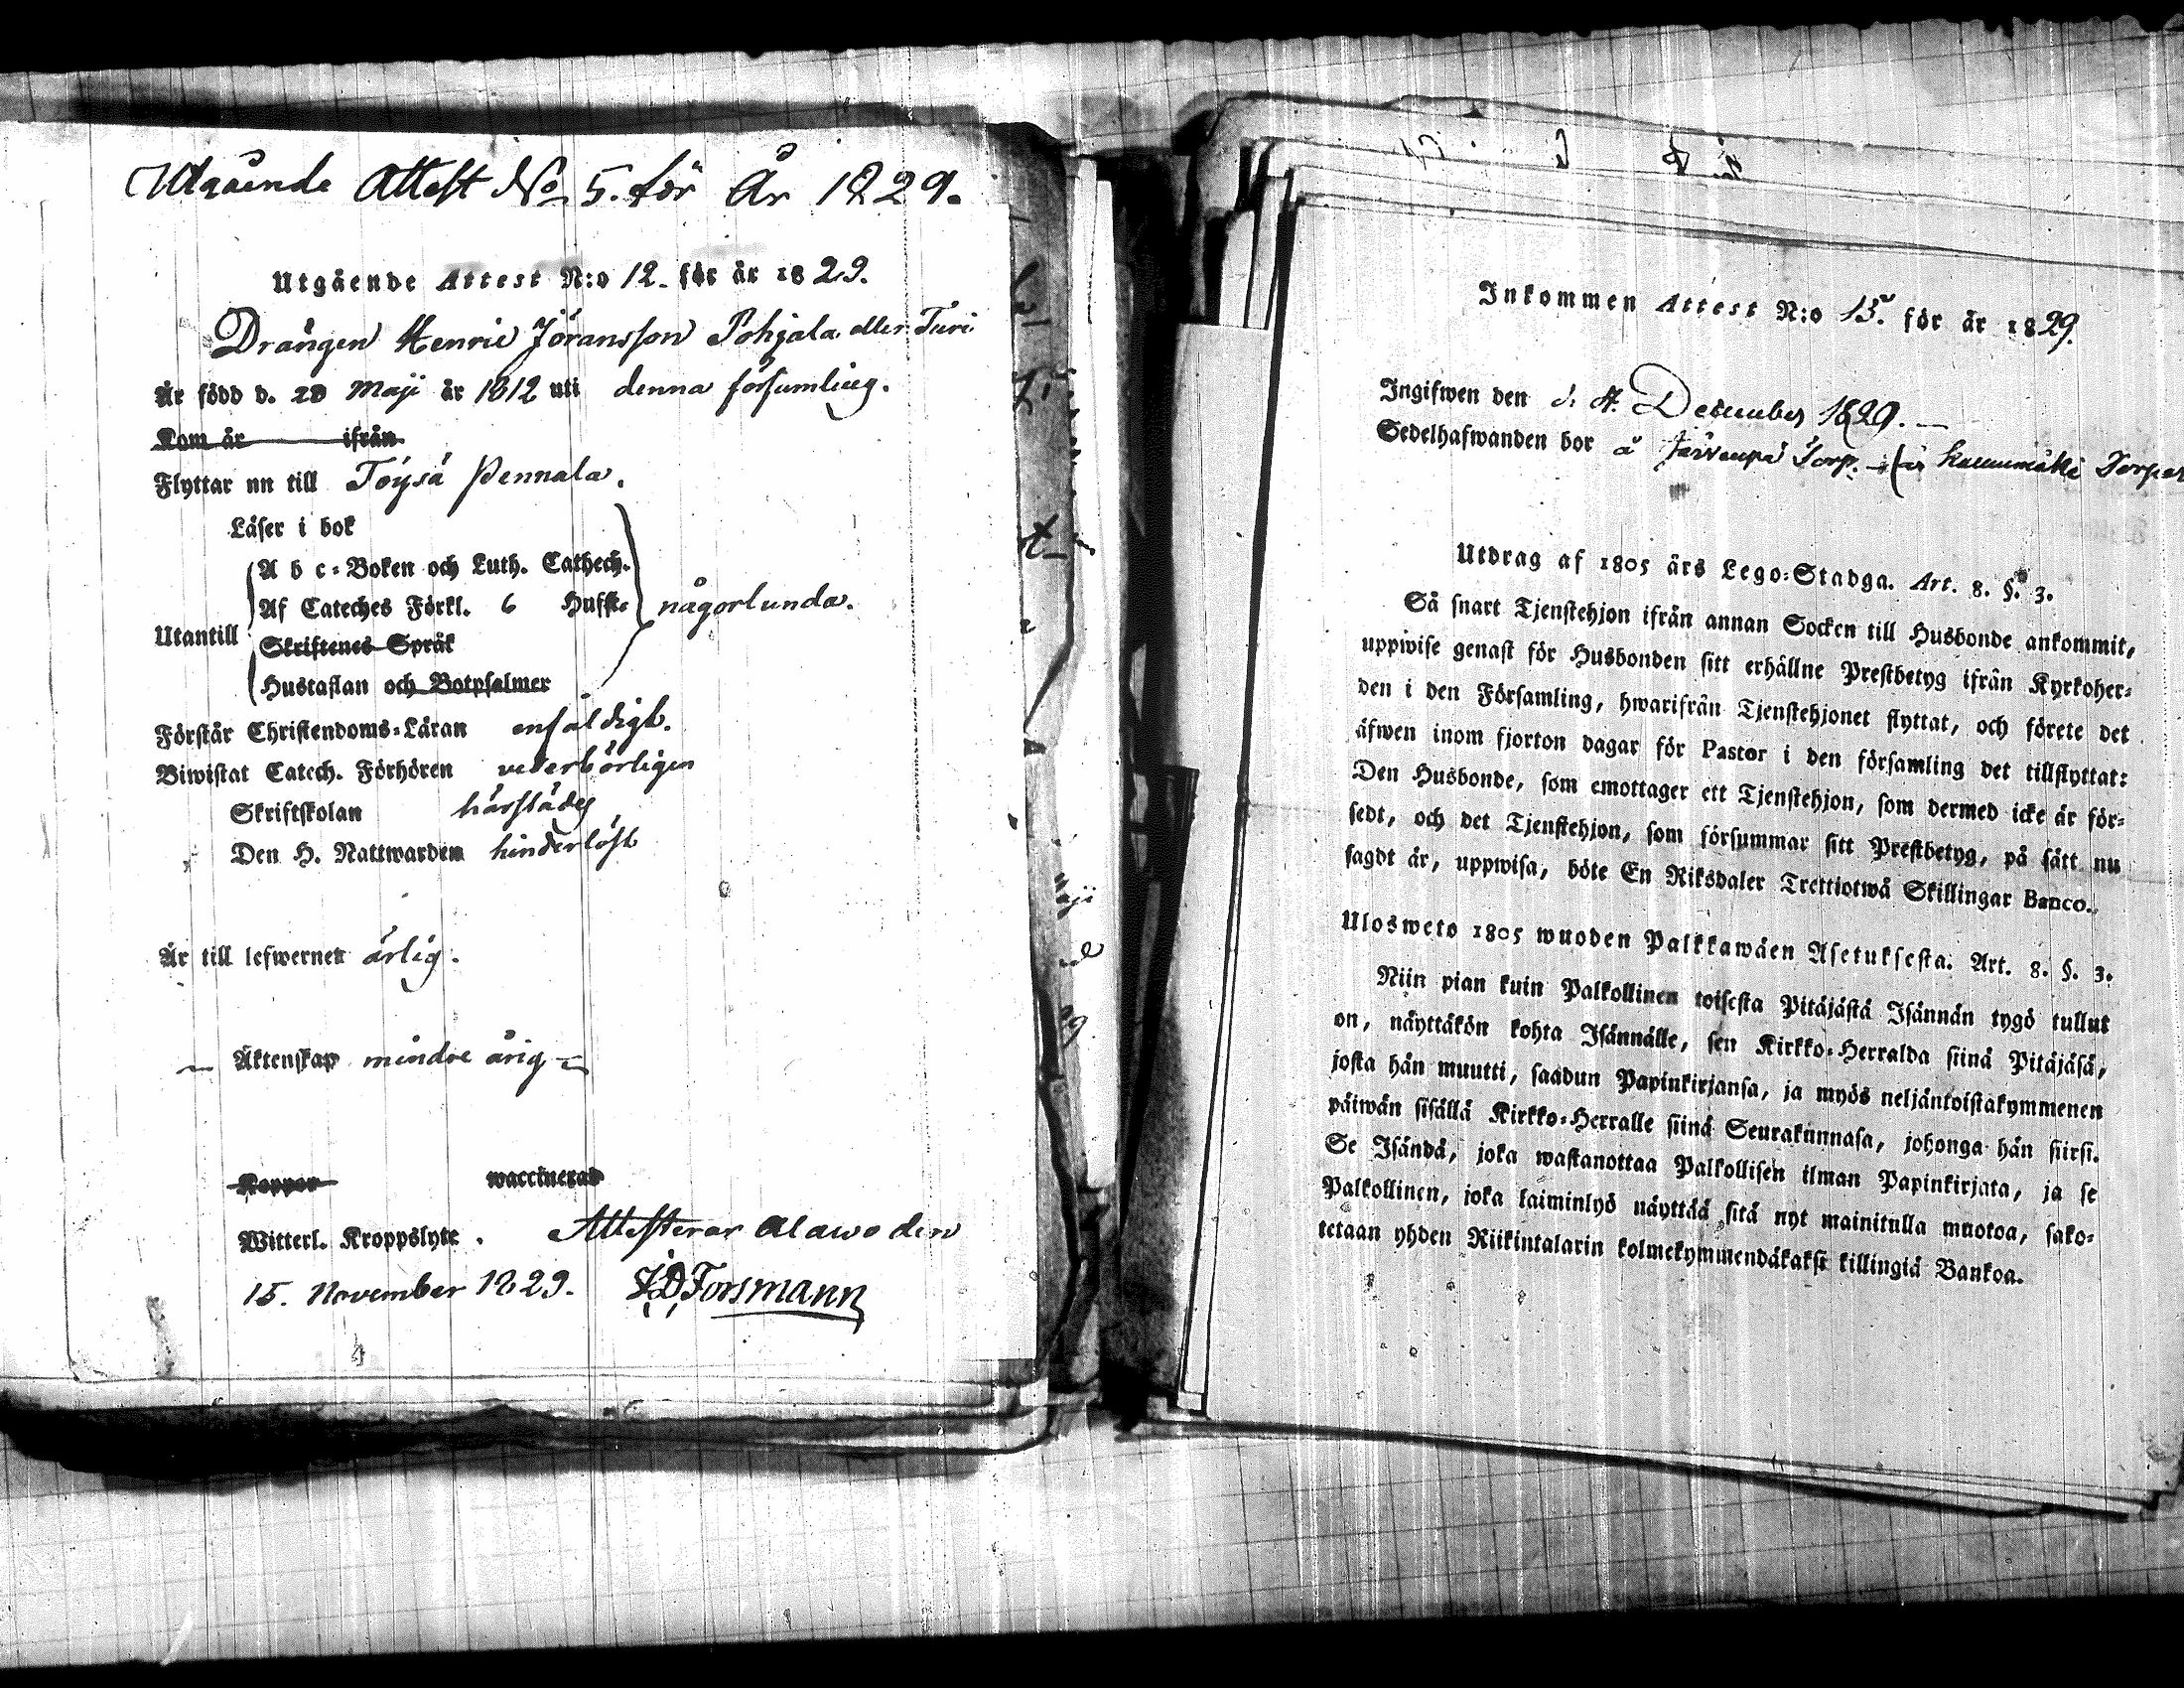 Utgående Attest No 5. för År 1829.
Utgående Attest N:o 12. för år 1829.
Drängen Henric Jöransson Pohjala eller Turi
Är född d. 28 Maji år 1812 uti denna församling.
Kom år ifrån
Flyttar nn till Töysä Pennala.
Läser i bok
A b c-Boken och Luth. Cathech.
Af Cateches Förkl. 6 Hufst. någorlunda.
Utantill
Skriftenes Språk
Hustaflan och Botpsalmer
Förstår Christendoms-Läran enfaldigt.
Biwistat Catech. Förhören vederbörligen
Skriftskolan härstädes
Den H. Nattwarden hinderlöst
Är till lefwernet ärlig.
Äktenskap mindre årig
Koppor waccinerad
Witterl. Kroppslyte. Attesterar Alawo den
15. November 1829. J.D. Forsmann
Inkommen Attest N:o 13. för år 1829.
Ingifwen den December 1829.
Sedelhafwanden bor å Järvenpä Torp.
Utdrag af 1805 års Lego-Stadga. Art. 8. §. 3.
Så snart Tjenstehjon ifrån annan Socken till Husbonde ankommit,
uppwise genast för Husbonden sitt erhållne Prestbetyg ifrån Kyrkoher-
den i den Församling, hwarifrån Tjenstehjonet flyttat, och förete det
äfwen inom fjorton dagar för Pastor i den församling det tillflyttat:
Den Husbonde, som emottager ett Tjenstehjon, som dermed icke är för-
sedt, och det Tjenstehjon, som försummar sitt Prestbetyg, på sätt nu
sagdt är, uppwisa, böte En Riksdaler Trettiotwå Skillingar Banco.
Ulosweto 1805 wuoden Palkkawäen Asetuksesta. Art. 8. §. 3.
Niin pian kuin Palkollinen toisesta Pitäjästä Isännän tygö tullut
on, näyttäkön kohta Isännälle, sen Kirkko-Herralda siinä Pitäjäsä,
josta hän muutti, saadun Papinkirjansa, ja myös neljäntoistakymmenen
päiwän sisällä Kirkko-Herralle siinä Seurakunnasa, johonga hän siirsi.
Se Isändä, joka wastanottaa Palkollisen ilman Papinkirjata, ja se
Palkollinen, joka laiminlyö näyttää sitä nyt mainitulla muotoa, sako-
tetaan yhden Riikintalarin kolmekymmendäkaksi killingiä Bankoa.